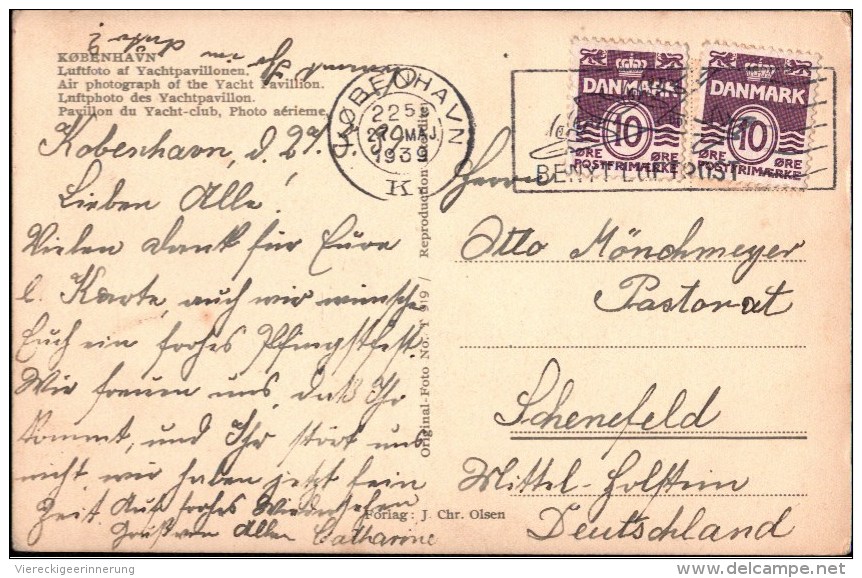 KØBENHAVN
Luftfoto af Yachtpavillonen.
Air photograph of the Yacht Pavillion.
Luftphoto des Yachtpavillon.
Pavillon du Yacht-club, Photo aérienne.
København, d. 27.5.
Lieben Alle!
Vielen Dank für Eure
l. Karte, auch wir wünschen
Euch ein frohes Pfingstfest.
Wir freuen uns, daß Ihr
kommt, und Ihr stört uns
nicht, wir haben jetzt fein
Zeit. Auf frohes Wiedersehen
Gruß von Allen Catharine
kommt Ihr im
KØBENHAVN
2251
27. MAJ
1939
K
BENYT LUFTPOST
DANMARK
10
ØRE ØRE
POSTFRIMÆRKE
DANMARK
10
ØRE ØRE
POSTFRIMÆRKE
Original-Foto No. T 919 / Reproduction
Herrn
Otto Mönchmeyer
Pastorat
Schenefeld
Mittel-Holstein
Deutschland
Forlag: J. Chr. Olsen
Viereckigeerinnerung
delcampe.net